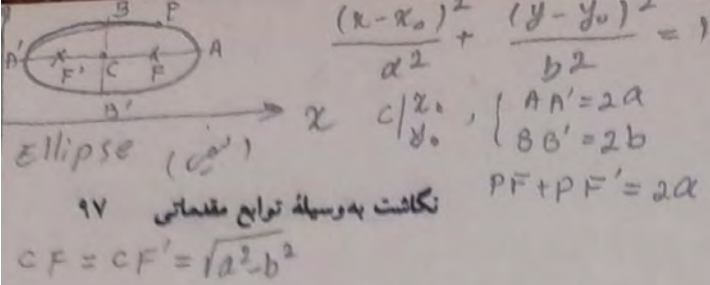 B P
A' F' C F A
B'
(x-x₀)²/a² + (y-y₀)²/b² = 1
x
C | x₀ y₀ , { AA' = 2a
BB' = 2b
Ellipse
PF + PF' = 2a
نگاشت به‌وسیلهٔ توابع مقدماتی ۹۷
CF = CF' = √a²-b²